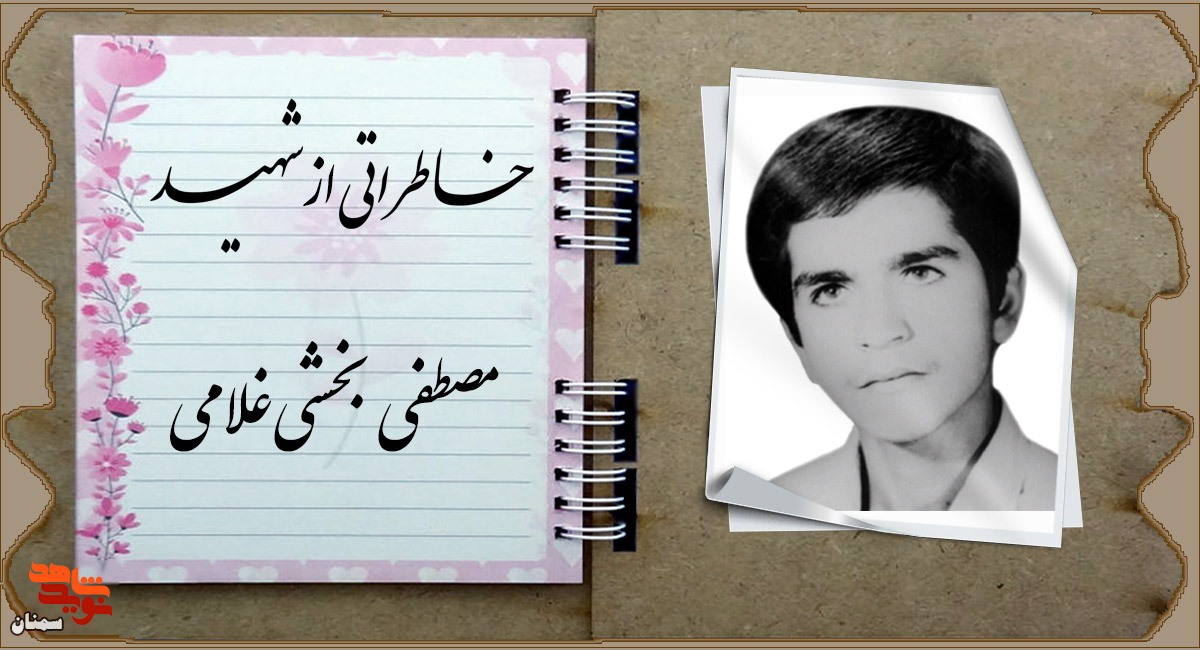 خاطراتی از شهید
مصطفی بخشی غلامی
نوید شاهد
سمنان